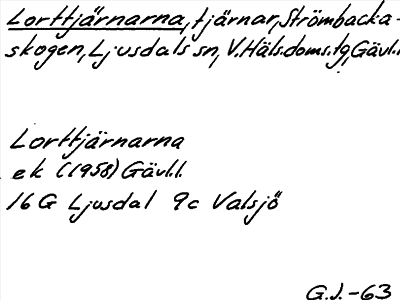 Lorttjärnarna, tjärnar, Strömbacka-
skogen, Ljusdals sn, V. Häls. doms. tg, Gävl. l.
Lorttjärnarna
ek (1958) Gävl. l.
16 G Ljusdal 9c Valsjö
G.J. -63